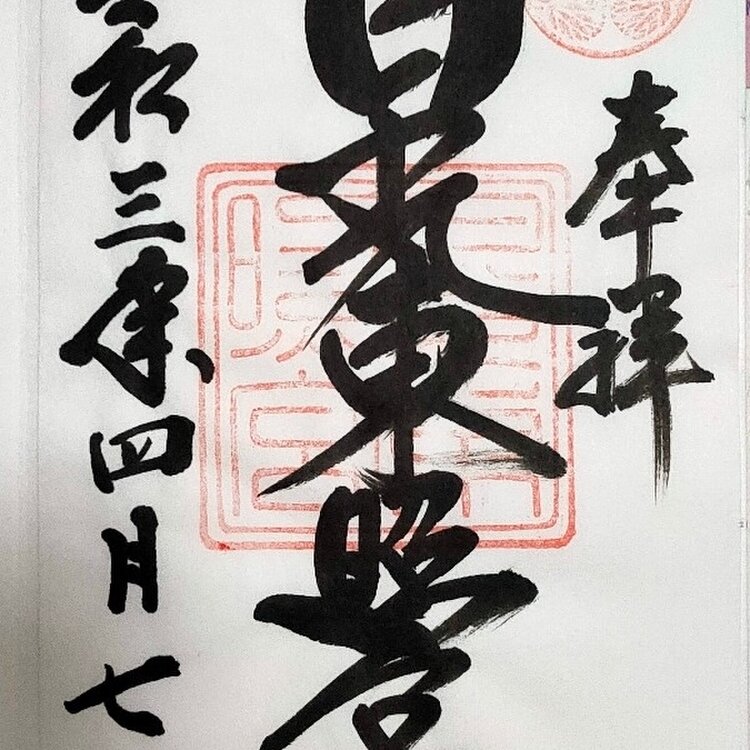 奉拝
日光東照宮
令和三年四月七